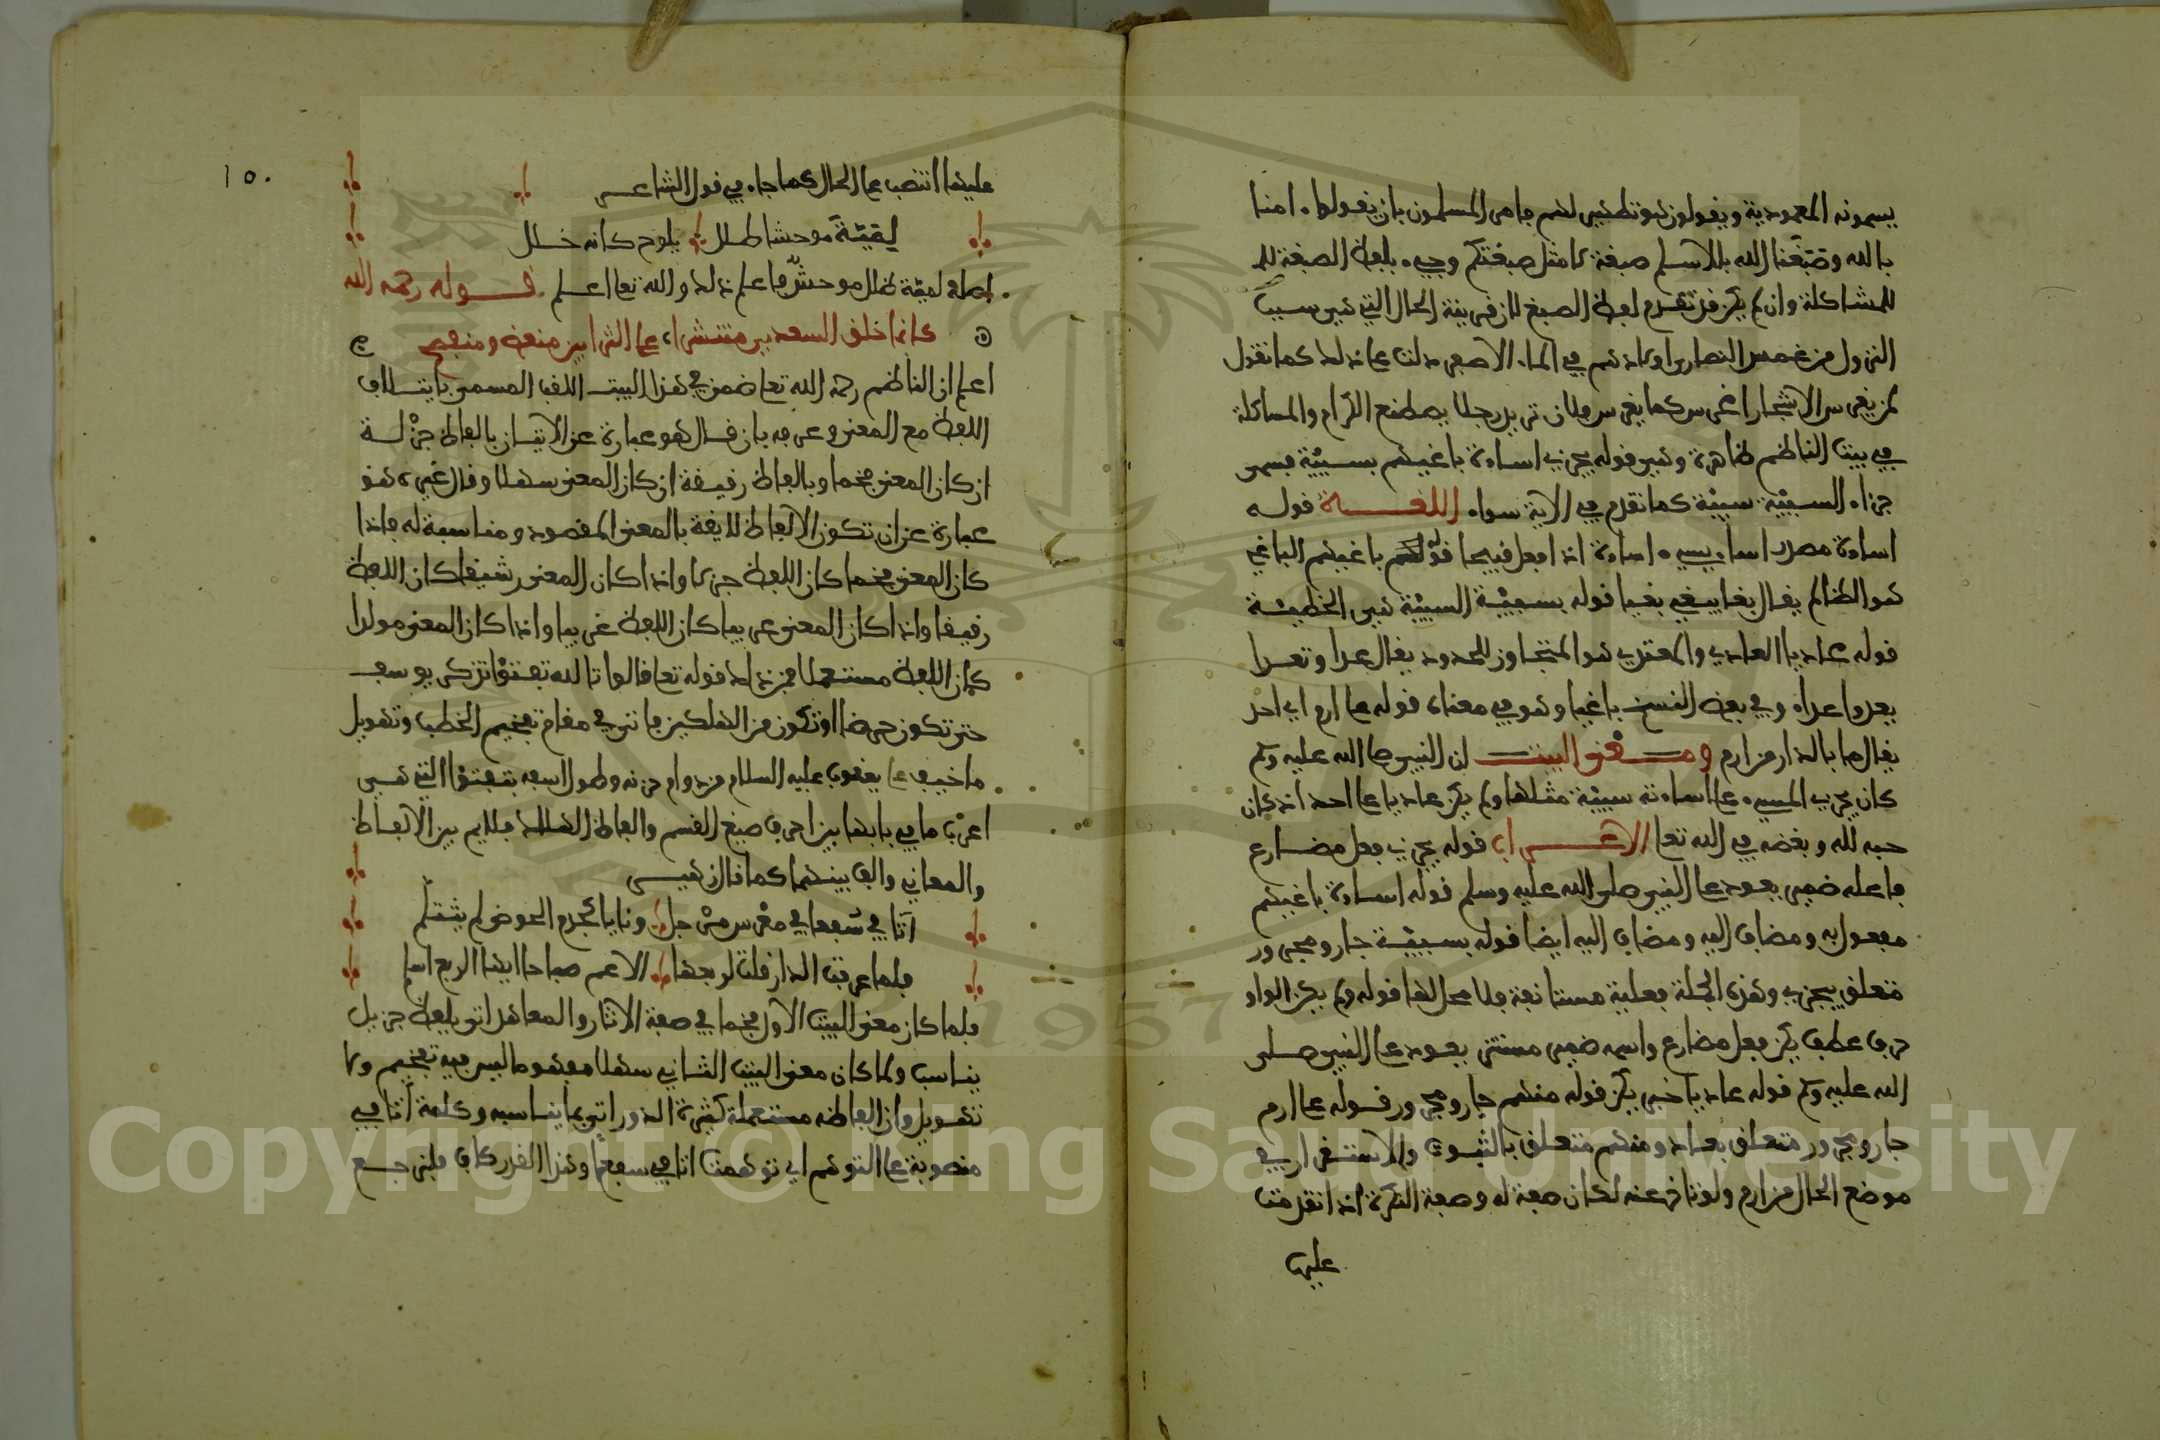 يسمونه المعمودية ويقولون هو تطهير لهم فامر المسلمون بان يقولوا امنا
بالله وصبغنا الله بالاسلم صبغة لا مثل صبغتكم وجيء بلفظ الصبغة
للمشاكلة وان لم يكن قد تقدم لفظ الصبغ لان قرينة الحال التي هي سبب
النزول من غمس النصارى اولادهم في الماء الاصفر دلت على ذلك كما تقول
لمن يغرس الاشجار اغرس كما يغرس فلان تريد رجلا يصطنع الكرام والمشاكلة
في بيت الناظم ظاهرة وهي قوله يجزي اساءة باغيهم بسيئة فسمى
جزاء السيئة سيئة كما تقدم في الاية سواء اللغة قوله
اساءة مصدر اساء يسيء اساءة اذا فعل قبيحا قوله باغيهم الباغي
هو الظالم يقال بغا يبغي بغيا قوله بسيئة السيئة هي الخطيئة
قوله عاديا العادي والمعتدي هو المتجاوز للحدود يقال عدا وتعدا
يعدوا عداء وفي بعض النسخ باغيا وهو في معناه قوله على ارم اي احد
يقال ما بالدار من ارم ومعنى البيت ان النبي صلى الله عليه وسلم
كان يجزي المسيء على اساءته سيئة مثلها ولم يكن عاديا على احد اذ كان
حبه لله وبغضه في الله تعالى الاعراب قوله يجزي فعل مضارع
فاعله ضمير يعود على النبي صلى الله عليه وسلم قوله اساءة باغيهم
مفعول به ومضاف اليه ومضاف اليه ايضا قوله بسيئة جار ومجرور
متعلق بيجزي وهذه الجملة فعلية مستانفة فلا محل لها قوله ولم يكن الواو
حرف عطف يكن فعل مضارع واسمه ضمير مستتر يعود على النبي صلى
الله عليه وسلم قوله عاديا خبر يكن قوله منهم جار ومجرور قوله على ارم
جار ومجرور متعلق بعاد ومنهم متعلق بالثبوت والاستقرار في
موضع الحال من ارم ولو تاخر عنه لكان صفة له وصفة النكرة اذا تقدمت
عليها
١٥٠
عليها انتصب على الحال كما جاء في قول الشاعر
لمية موحشا طلل يلوح كانه خلل
اصله لمية طلل موحش فاعلم ذلك والله تعالى اعلم قوله رحمه الله
كانما خلق السعدي منتشرا على الثرا بين منقض ومنفصم
اعلم ان الناظم رحمه الله تعالى ضمن في هذا البيت اللقب المسمى بايتلاف
اللفظ مع المعنى وعرفه بان قال هو عبارة عن الاتيان بالفاظ جزلة
ان كان المعنى فخما وبالفاظ رقيقة ان كان المعنى سهلا وقال غيره هو
عبارة عن ان تكون الالفاظ لايقة بالمعنى المقصود ومناسبة له فاذا
كان المعنى فخما كان اللفظ جزلا واذا كان المعنى رشيقا كان اللفظ
رقيقا واذا كان المعنى غريبا كان اللفظ غريبا واذا كان المعنى مولدا
كان اللفظ مستعملا فمن ذلك قوله تعالى قالوا تالله تفتؤا تذكر يوسف
حتى تكون حرضا او تكون من الهالكين فاتى في مقام تفخيم الخطب وتهويل
ما خيف على يعقوب عليه السلام من دوام حزنه وطول اسفه بتفتؤا التي هي
اغرب ما في بابها بين احرف صيغ القسم والفاظ الهلاك فلايم بين الالفاظ
والمعاني والف بينهما كما قال زهير
اثافي سفعا في معرس مرجل ونايا كجذم الحوض لم يتثلم
فلما عرفت الدار قلت لربعها الا عم صباحا ايها الربع اسلم
فلما كان معنى البيت الاول فخما في صفة الاثار والمعاهد اتى بلفظ جزيل
يناسب ولما كان معنى البيت الثاني سهلا مفهوما ليس فيه تفخيم ولا
تهويل وان الفاظه مستعملة كثيرة الدور اتى بما يناسبه وكلمة اثافي
منصوبة على التوهم اي توهمت اثافي سفعا وهذا القدر كاف فلنرجع
Copyright © King Saud University
1957